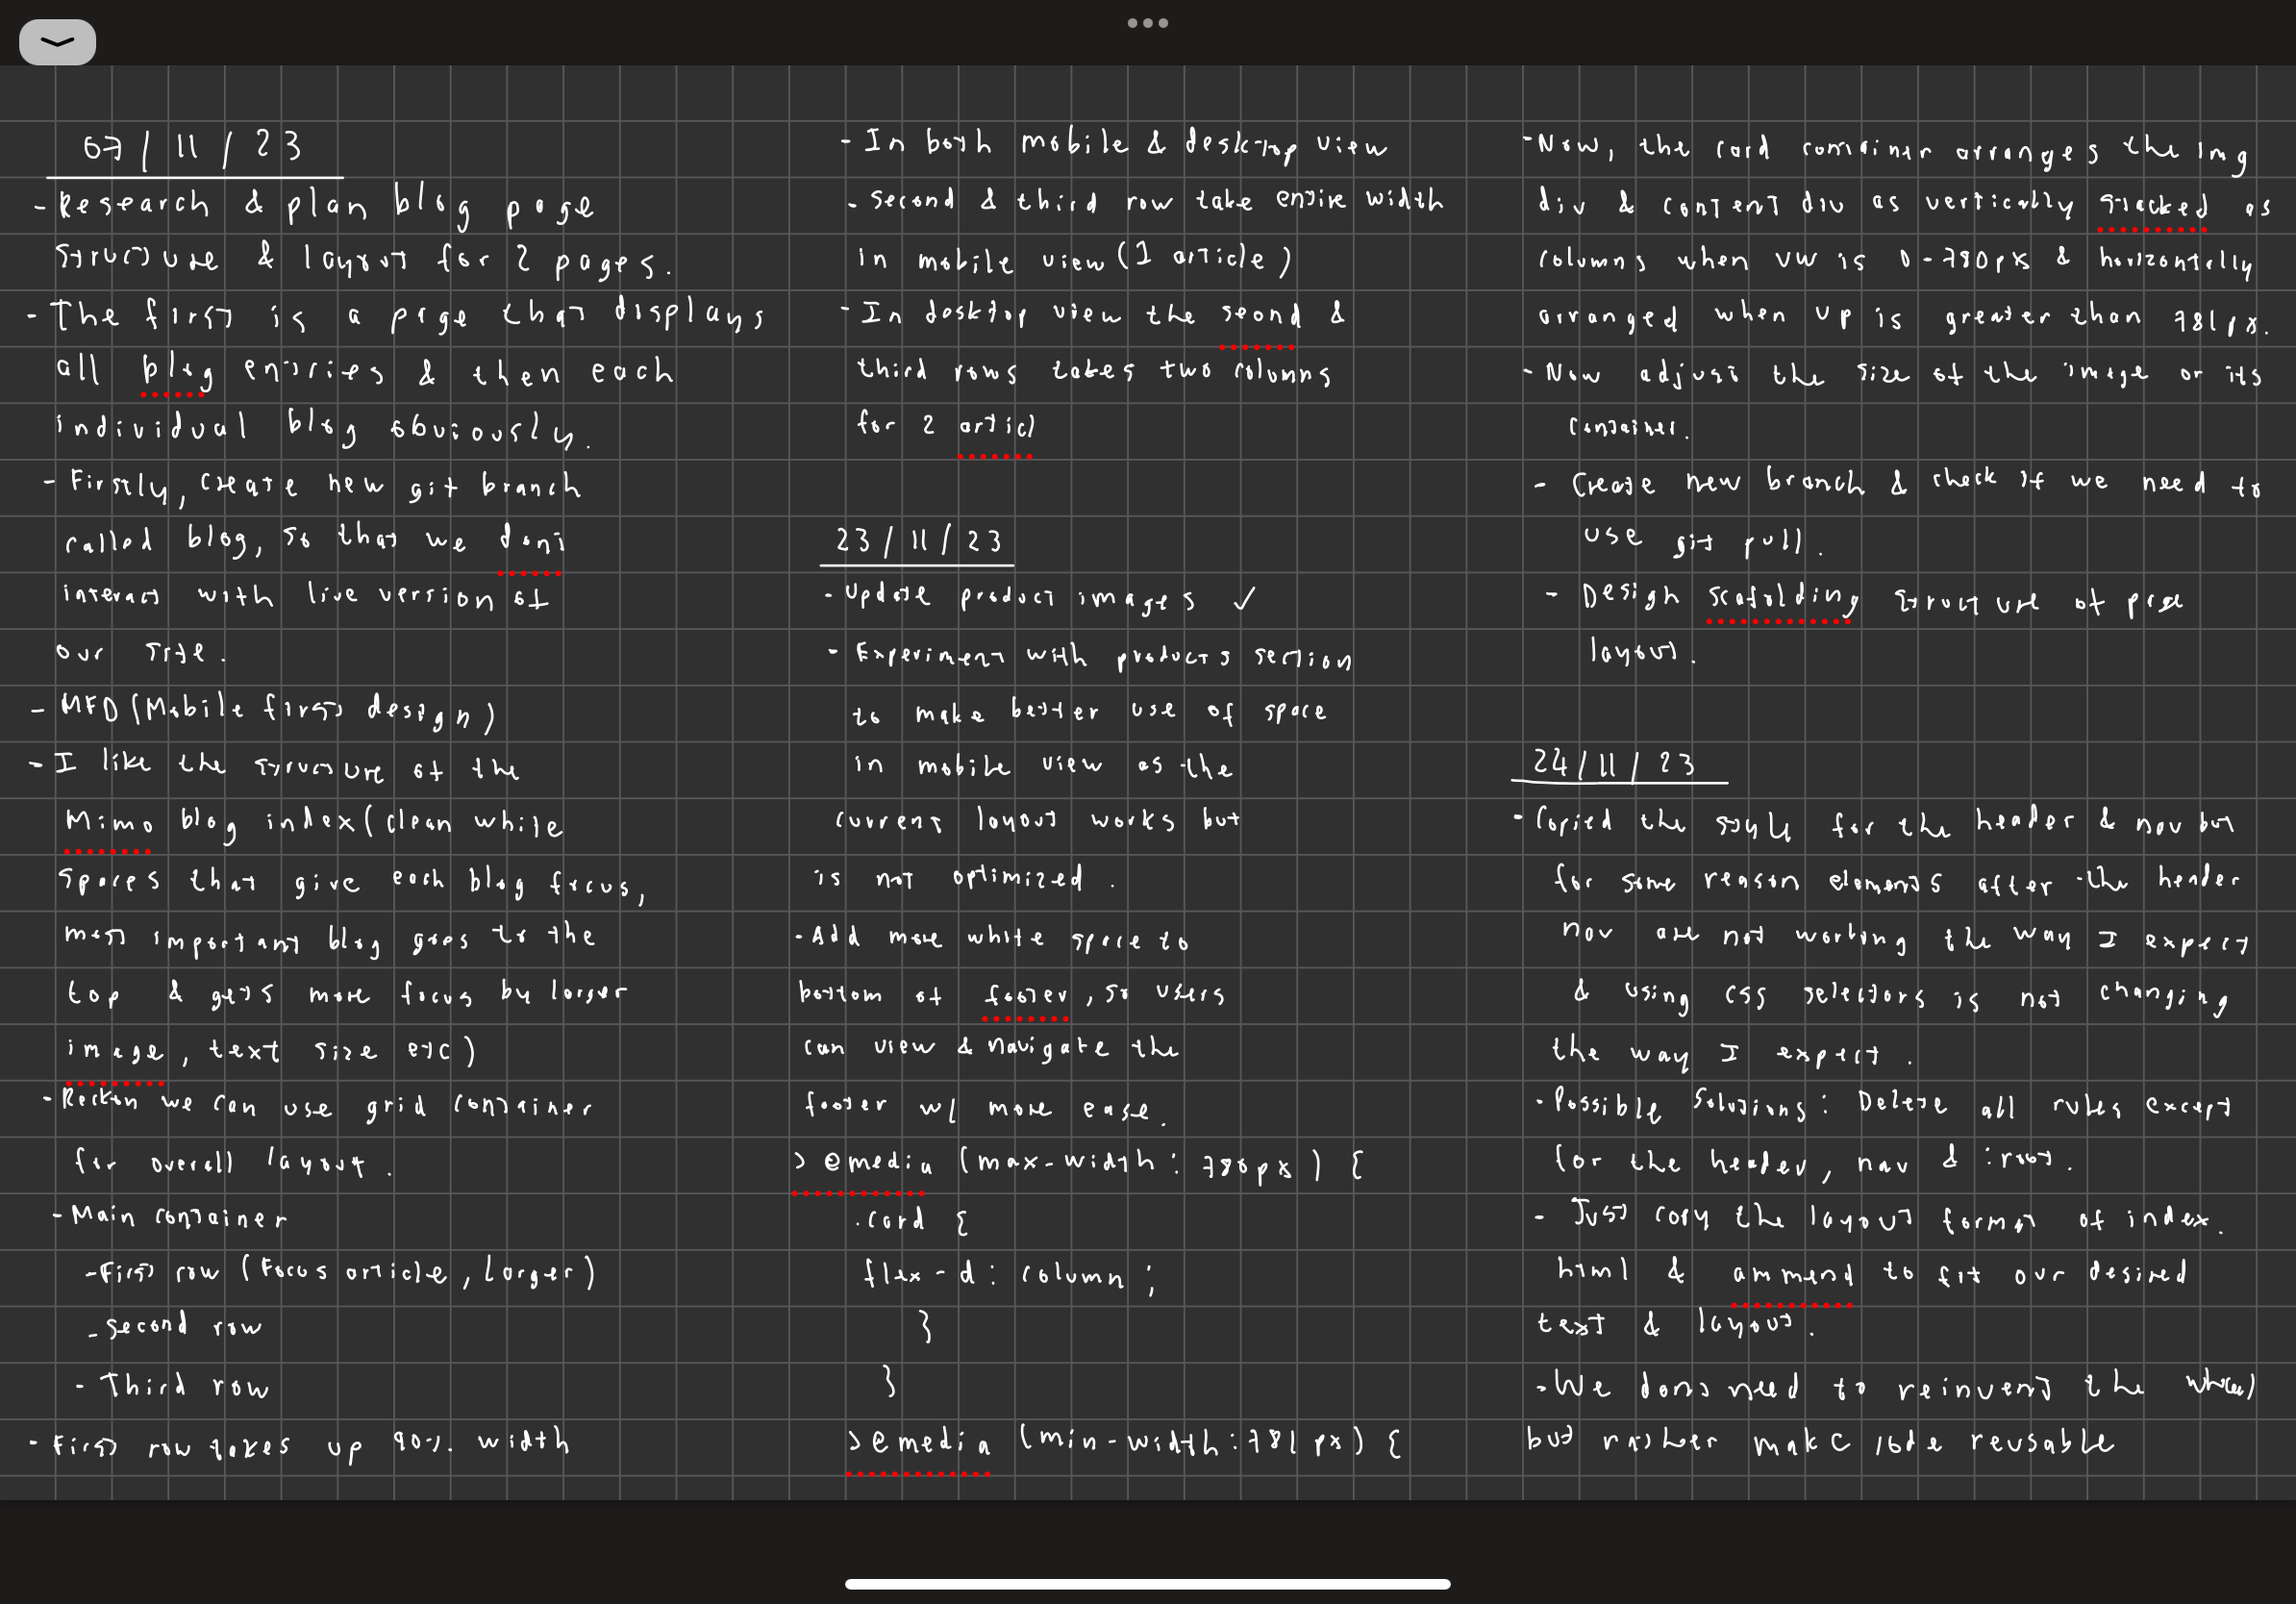 07/11/23
- Research & plan blog page
structure & layout for 2 pages.
- The first is a page that displays
all blog entries & then each
individual blog obviously.
- Firstly, create new git branch
called blog, so that we dont
interact with live version of
our site.
- MFD (Mobile first design)
- I like the structure of the
Mimo blog index (clean white
spaces that give each blog focus,
most important blog goes to the
top & gets more focus by larger
image, text size etc)
- Reckon we can use grid container
for overall layout.
- Main container
- First row (Focus article, larger)
- Second row
- Third row
- First row takes up 90% width
- In both mobile & desktop view
- Second & third row take entire width
in mobile view (1 article)
- In desktop view the seond &
third rows takes two columns
for 2 articl
23/11/23
- Update product images ✓
- Experiment with products section
to make better use of space
in mobile view as the
current layout works but
is not optimized.
- Add more white space to
bottom of footer, so users
can view & navigate the
footer w/ more ease.
> @media (max-width: 780px) {
.card {
flex-d: column;
}
}
> @media (min-width: 781px) {
- Now, the card container arranges the img
div & content div as vertically stacked as
columns when vw is 0-780px & horizontally
arranged when vp is greater than 781px.
- Now adjust the size of the image or its
container.
- Create new branch & check if we need to
use git pull.
- Design scafolding structure of page
layout.
24/11/23
- Copied the style for the header & nav but
for some reason elements after the header
nav are not working the way I expect
& using css selectors is not changing
the way I expect.
- Possible Solutions: Delete all rules except
for the header, nav & :root.
- Just copy the layout format of index.
html & ammend to fit our desired
text & layout.
- We dont need to reinvent the wheel
but rather make code reusable